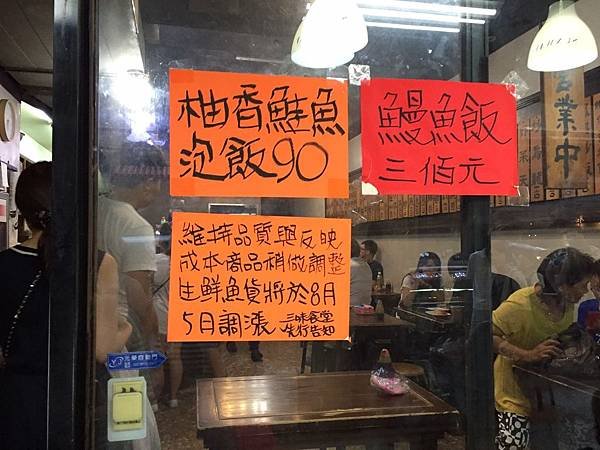 柚香鮭魚
泡飯90
鰻魚飯
三佰元
維持品質與反映
成本商品稍做調整
生鮮魚貨將於8月
5日調漲
三味食堂
先行告知
營業中